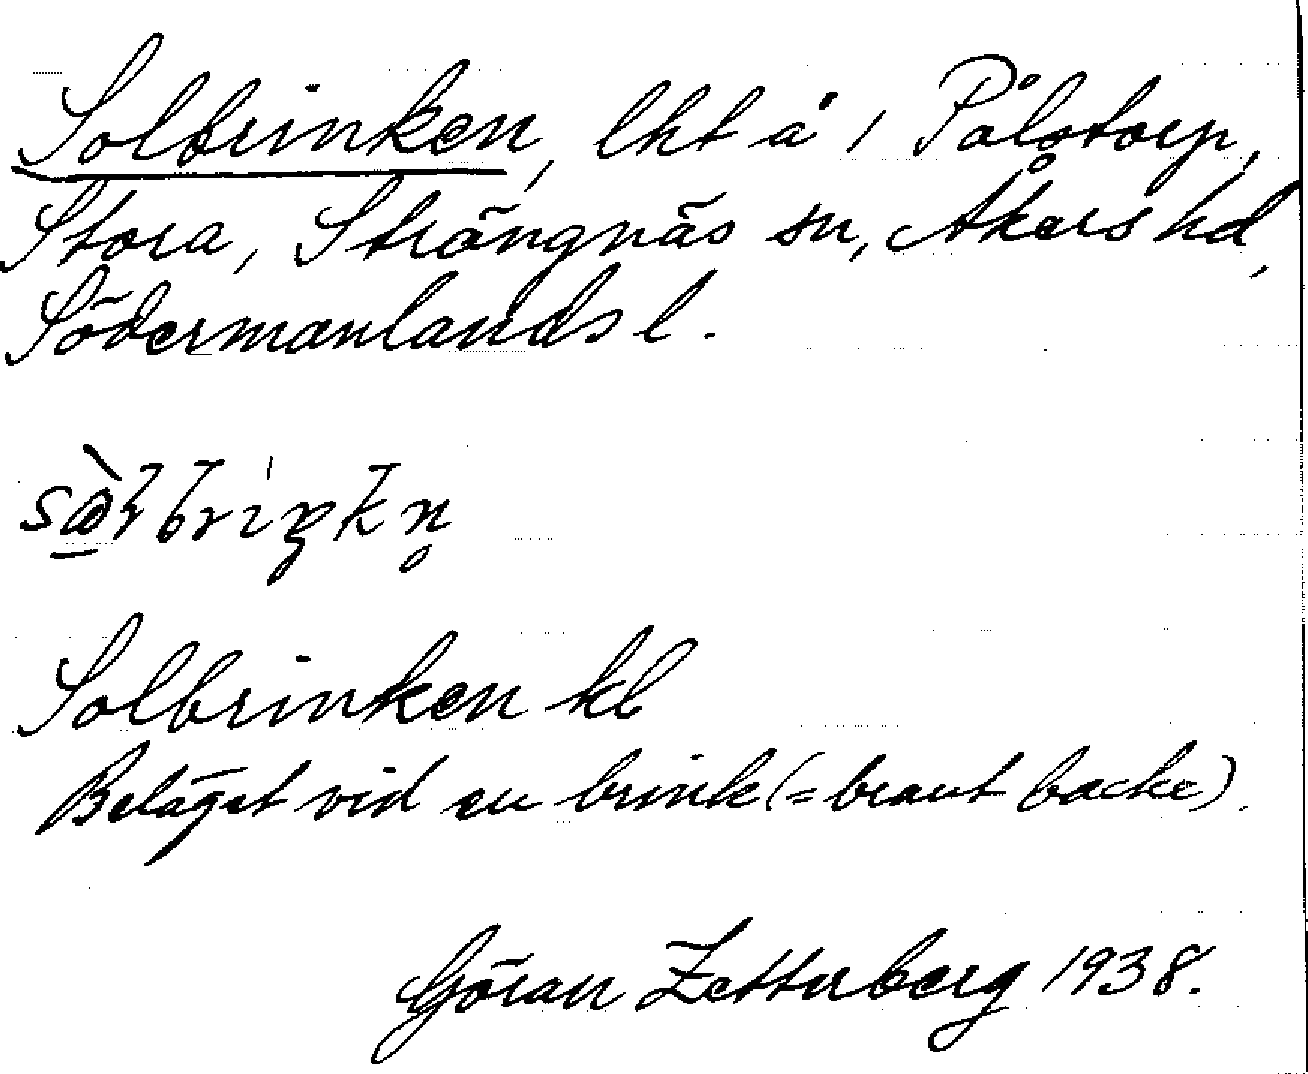 Solbrinken, lht å 1 Pålstorp,
Stora, Strängnäs sn, Åkers hd,
Södermanlands l.
Solbrinken kb
Beläget vid en brink (= brant backe).
Göran Zetterberg 1938.